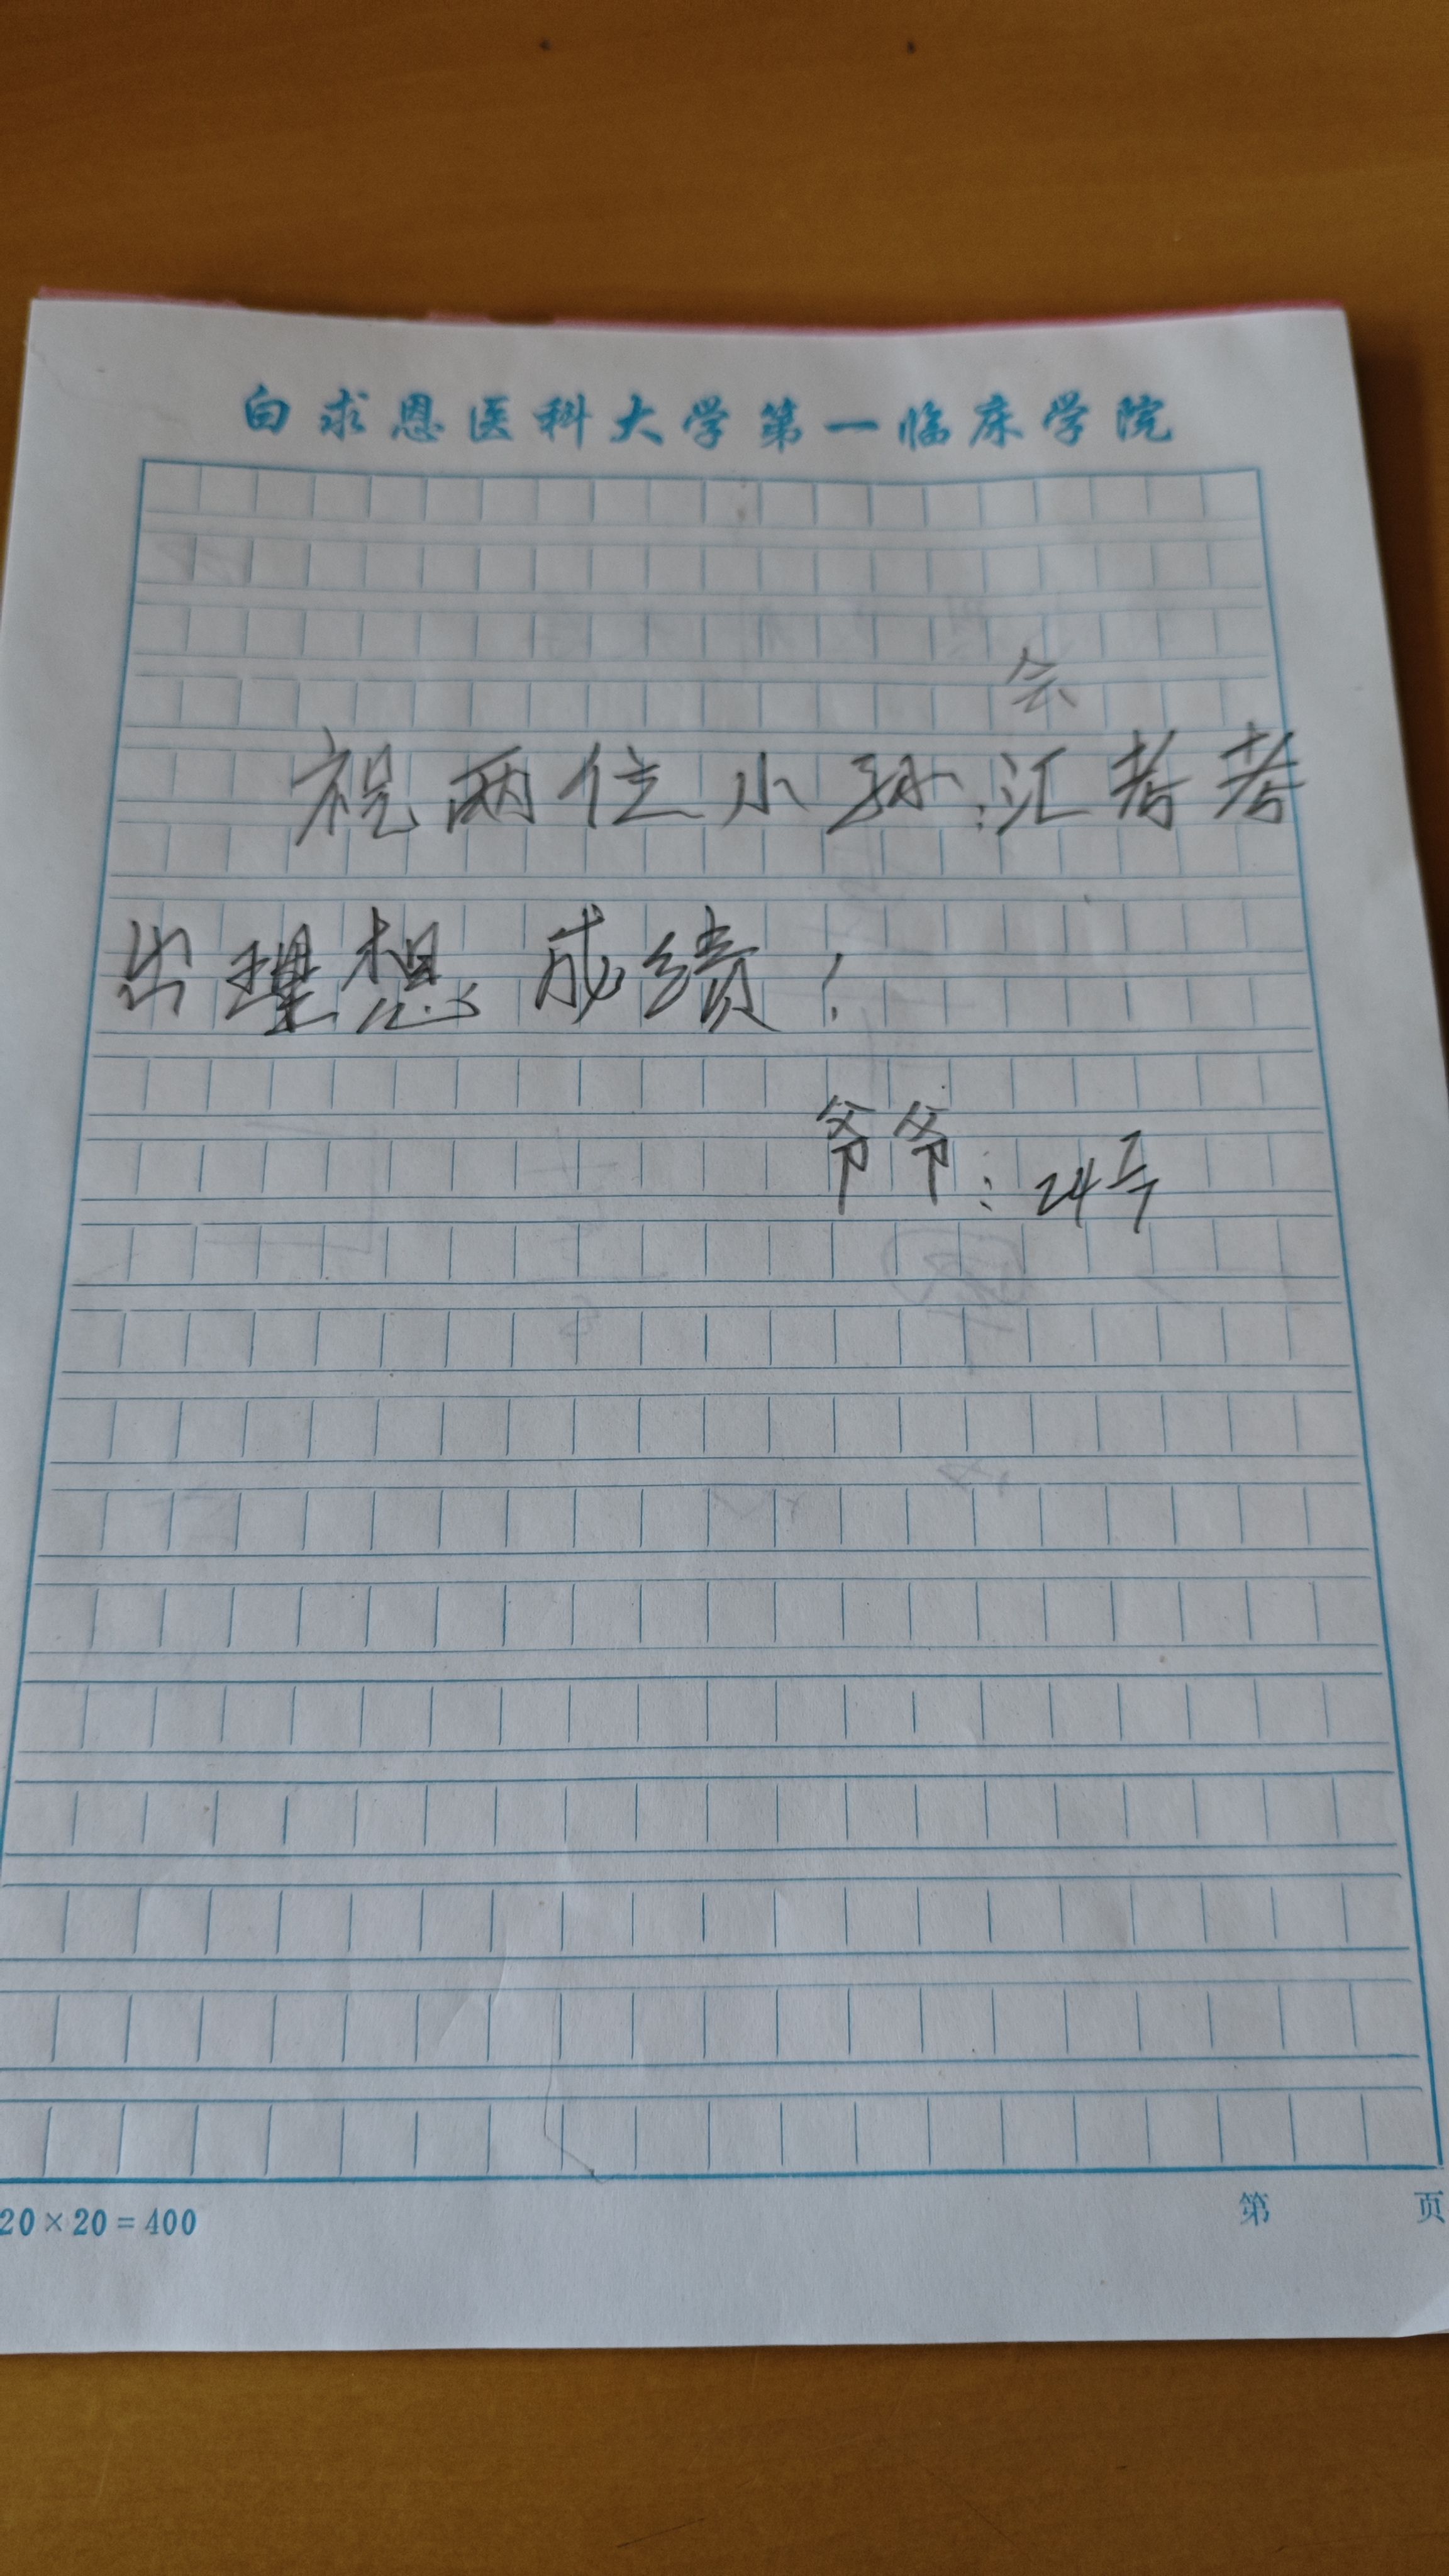 白求恩医科大学第一临床学院
会
祝两位小孙:汇考考
出理想成绩!
爷爷:24号
20×20=400
第 页